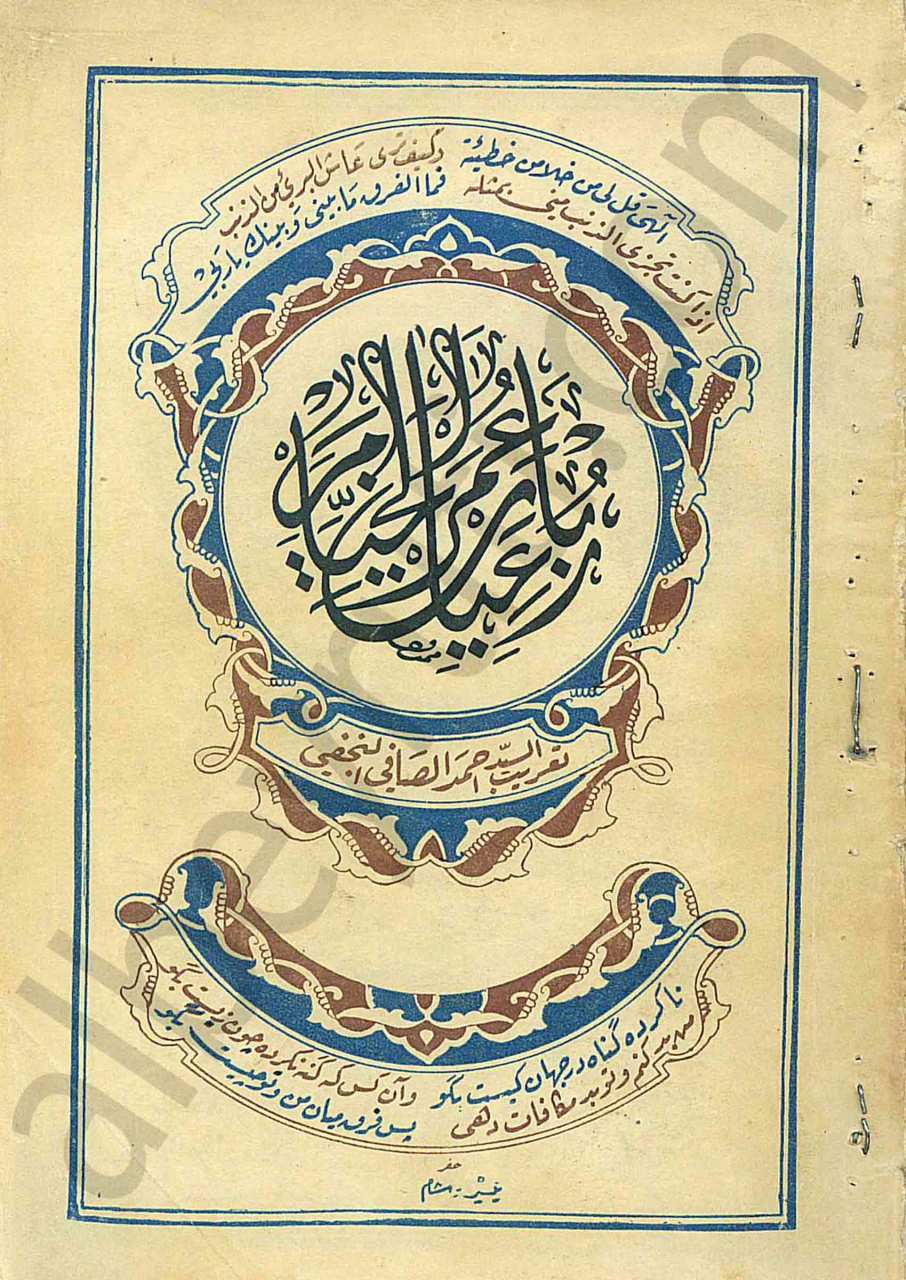 آلهي قل لي من خلا من خطيئة وكيف ترى عاش البرئ من الذنب
اذا كنت تجزى الذنب مني بمثله فما الفرق ما بيني وبينك يا ربي
رباعيات عمر الخيام
تعريب السيد احمد الصافي النجفي
ناكرده گناه در جهان كيست بگو وآن كس كه گنه نكرده چون زيست بگو
من بد كنم و تو بد مكافات دهى پس فرق ميان من و تو چيست بگو
حفر
alkher .com